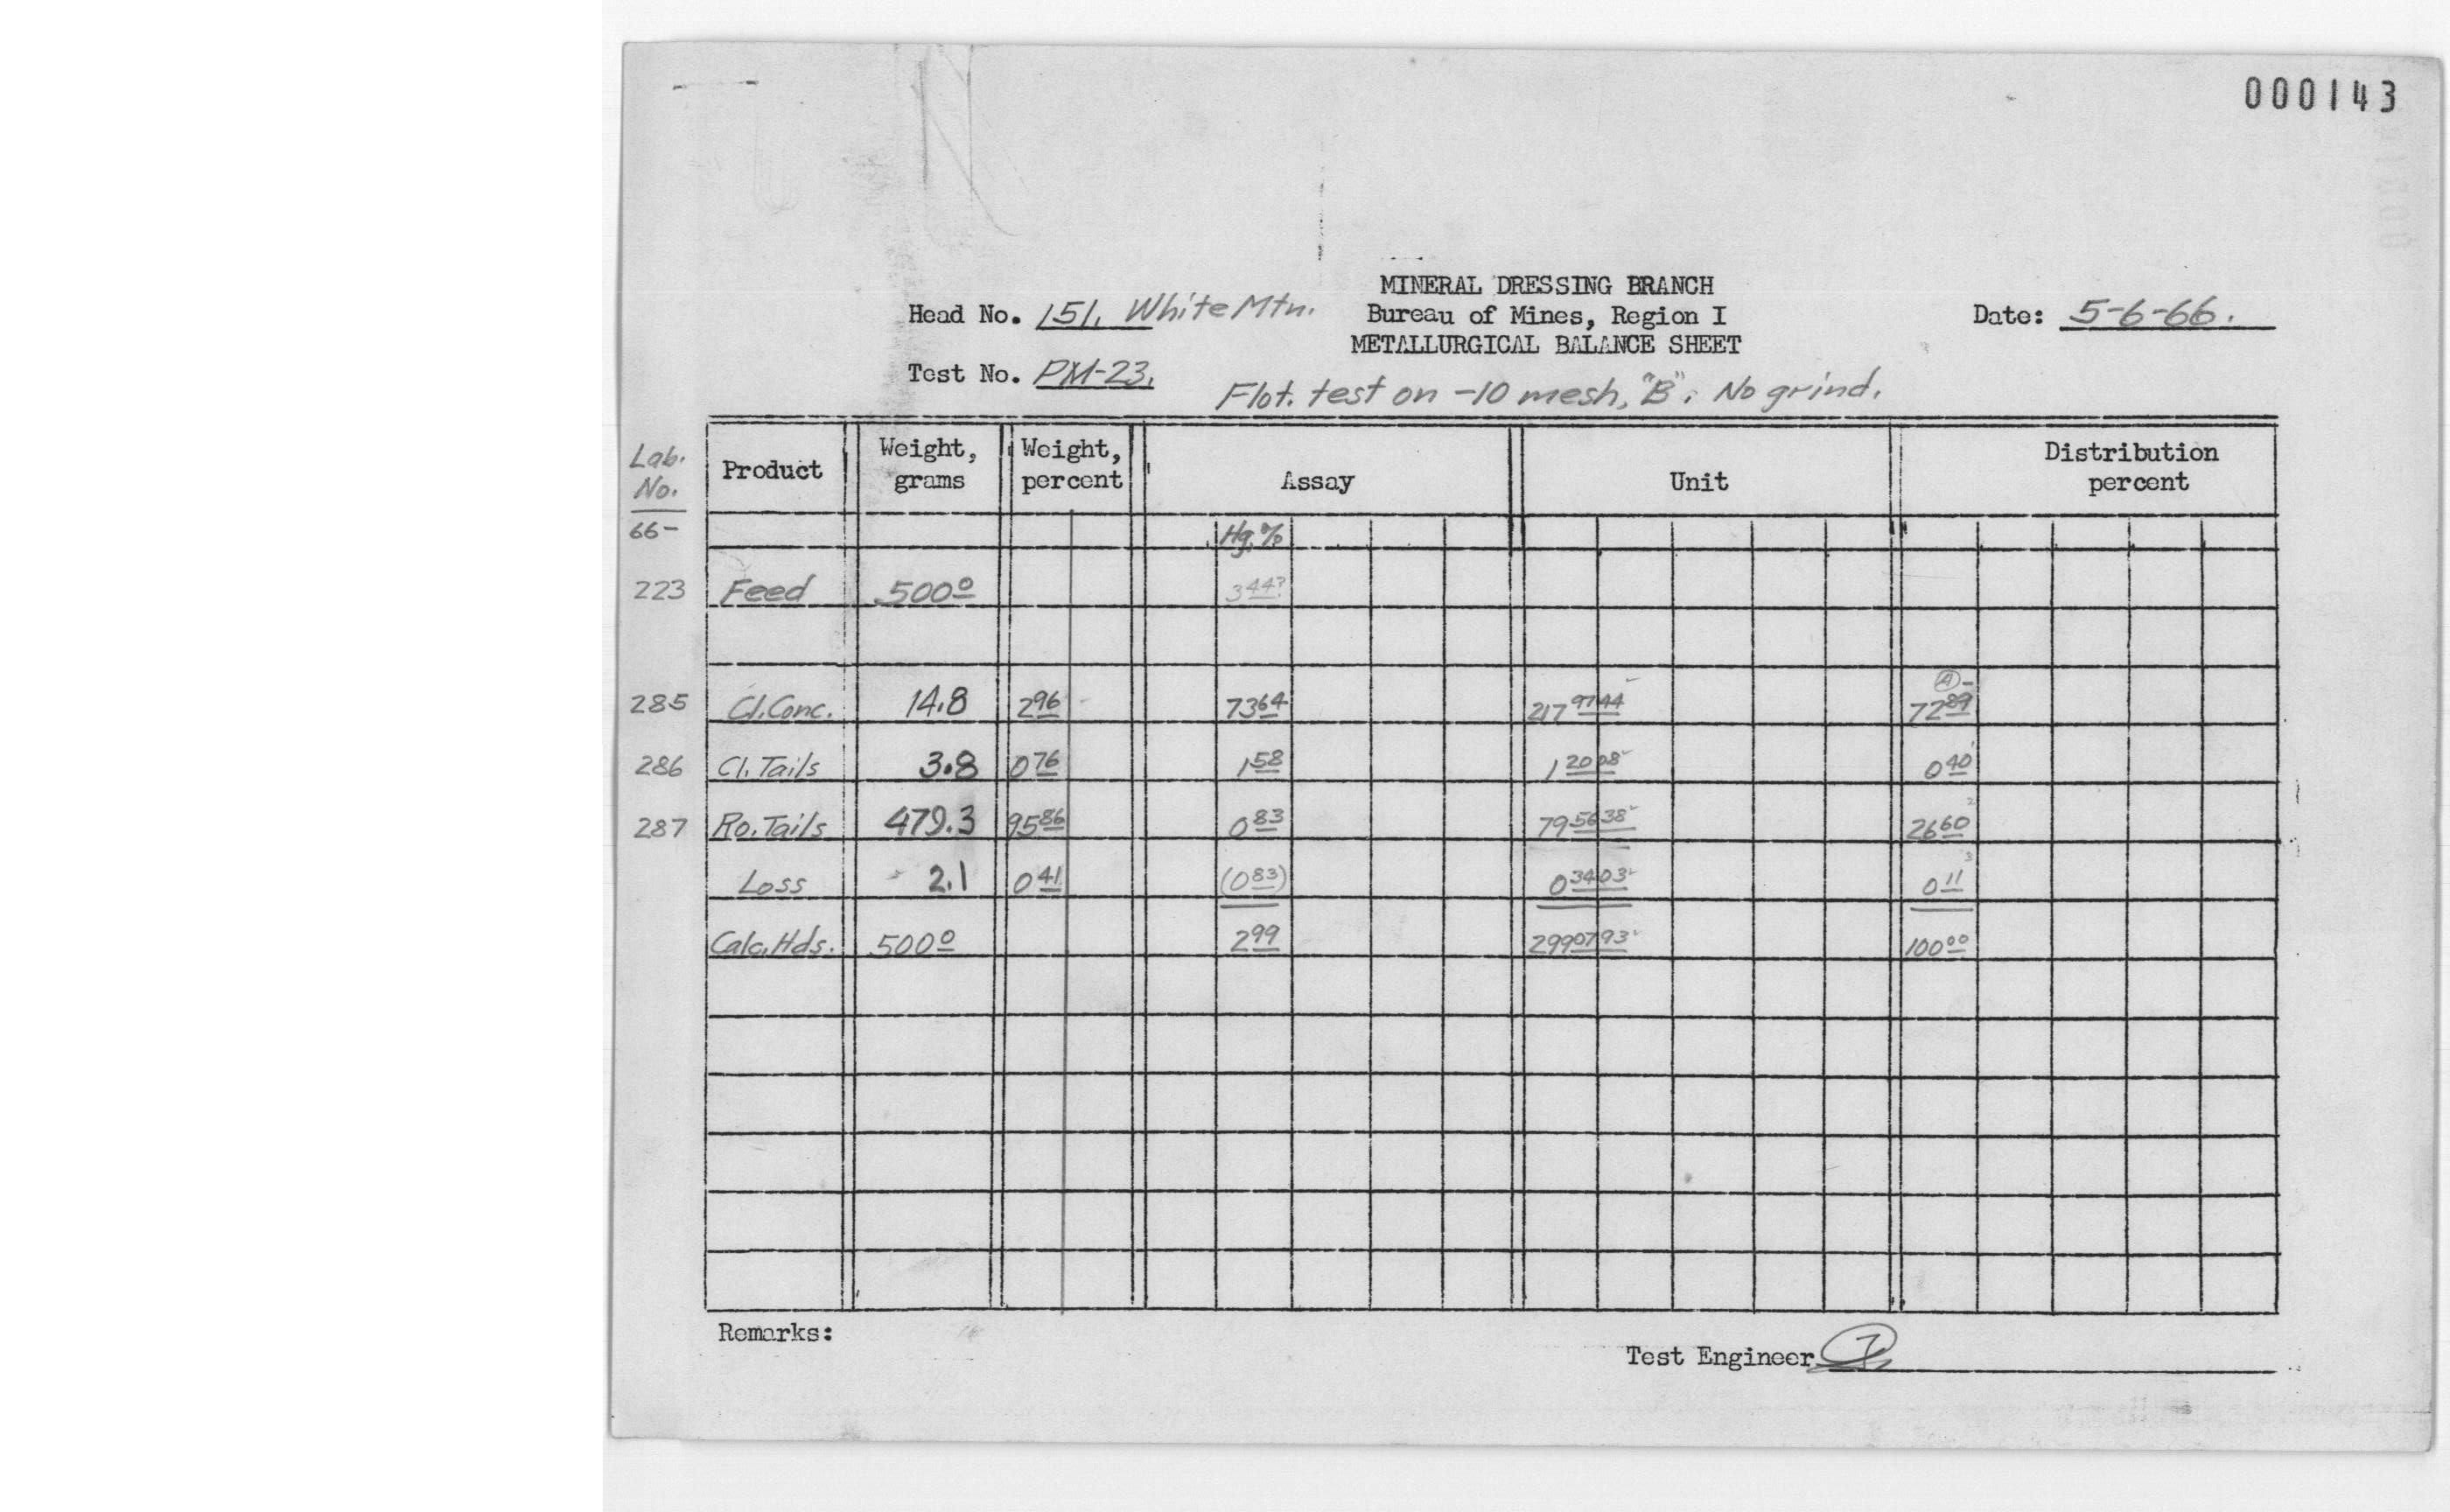 000143
MINERAL DRESSING BRANCH
Head No. 151. White Mtn. Bureau of Mines, Region I Date: 5-6-66.
METALLURGICAL BALANCE SHEET
Test No. PM-23.
Flot. test on -10 mesh, "B". No grind.
Lab. No. Product Weight, grams Weight, percent Assay Unit Distribution percent
66- Hg.%
223 Feed 500⁰ 3⁴⁴?
A -
285 Cl.Conc. 14.8 2⁹⁶ 73⁶⁴ 217⁹⁷⁴⁴ 72⁸⁹
286 Cl. Tails 3.8 0⁷⁶ 1⁵⁸ 1²⁰⁰⁸ 0⁴⁰
287 Ro. Tails 479.3 95⁸⁶ 0⁸³ 79⁵⁶³⁸ 26⁶⁰
Loss 2.1 0⁴¹ (0⁸³) 0³⁴⁰³ 0¹¹
Calc. Hds. 500⁰ 2⁹⁹ 299⁰⁷⁹³ 100⁰⁰
Remarks:
Test Engineer